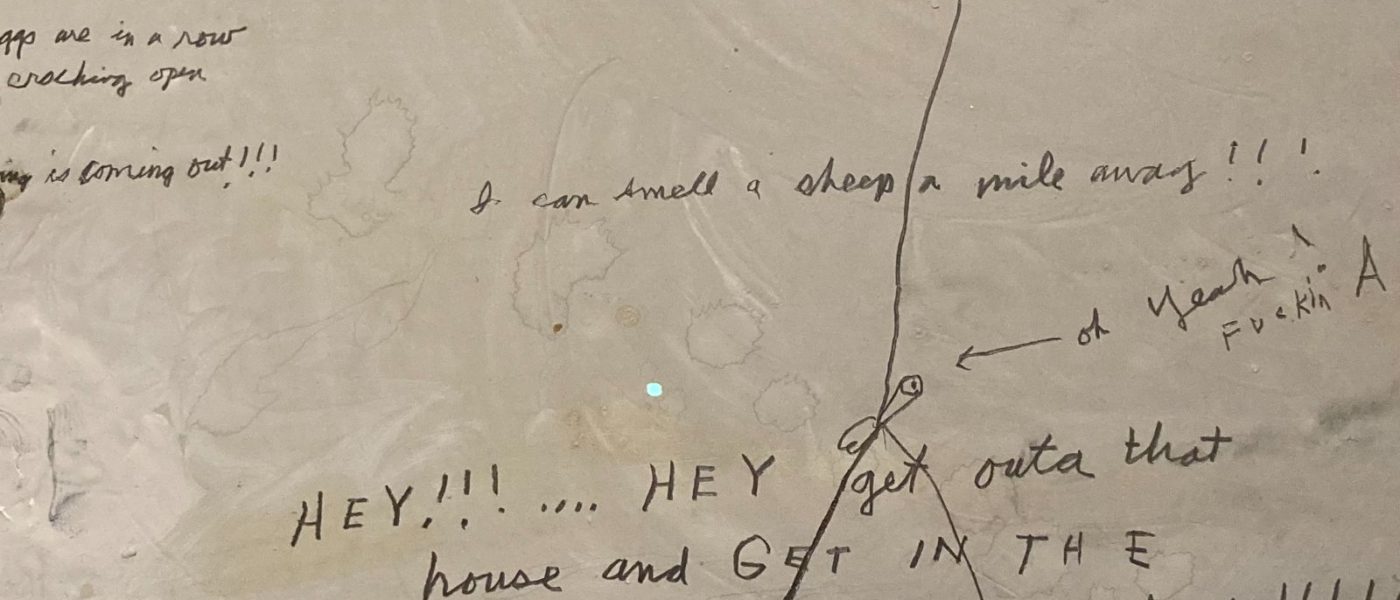 are in a row
cracking open
is coming out!!!
I can smell a sheep a mile away!!!
oh yeah!
Fuckin A
HEY!!! .... HEY get outa that
house and GET IN THE